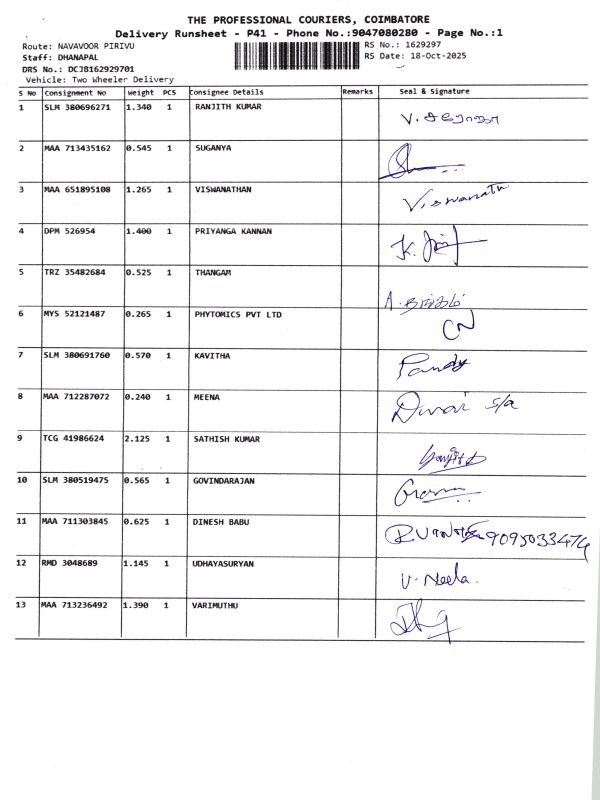 THE PROFESSIONAL COURIERS, COIMBATORE
Delivery Runsheet - P41 - Phone No.:9047080280 - Page No.:1
Route: NAVAVOOR PIRIVU RS No.: 1629297
Staff: DHANAPAL RS Date: 18-Oct-2025
DRS No.: DCJB162929701
Vehicle: Two Wheeler Delivery
S No Consignment No Weight PCS Consignee Details Remarks Seal & Signature
1 SLM 380696271 1.340 1 RANJITH KUMAR V.
2 MAA 713435162 0.545 1 SUGANYA
3 MAA 651895108 1.265 1 VISWANATHAN Viswanath
4 DPM 526954 1.400 1 PRIYANGA KANNAN K.
5 TRZ 35482684 0.525 1 THANGAM A.
6 MYS 52121487 0.265 1 PHYTOMICS PVT LTD
7 SLM 380691760 0.570 1 KAVITHA Pandy
8 MAA 712287072 0.240 1 MEENA Durai S/o
9 TCG 41986624 2.125 1 SATHISH KUMAR
10 SLM 380519475 0.565 1 GOVINDARAJAN
11 MAA 711303845 0.625 1 DINESH BABU 9095033474
12 RMD 3048689 1.145 1 UDHAYASURYAN U. Neela.
13 MAA 713236492 1.390 1 VARIMUTHU